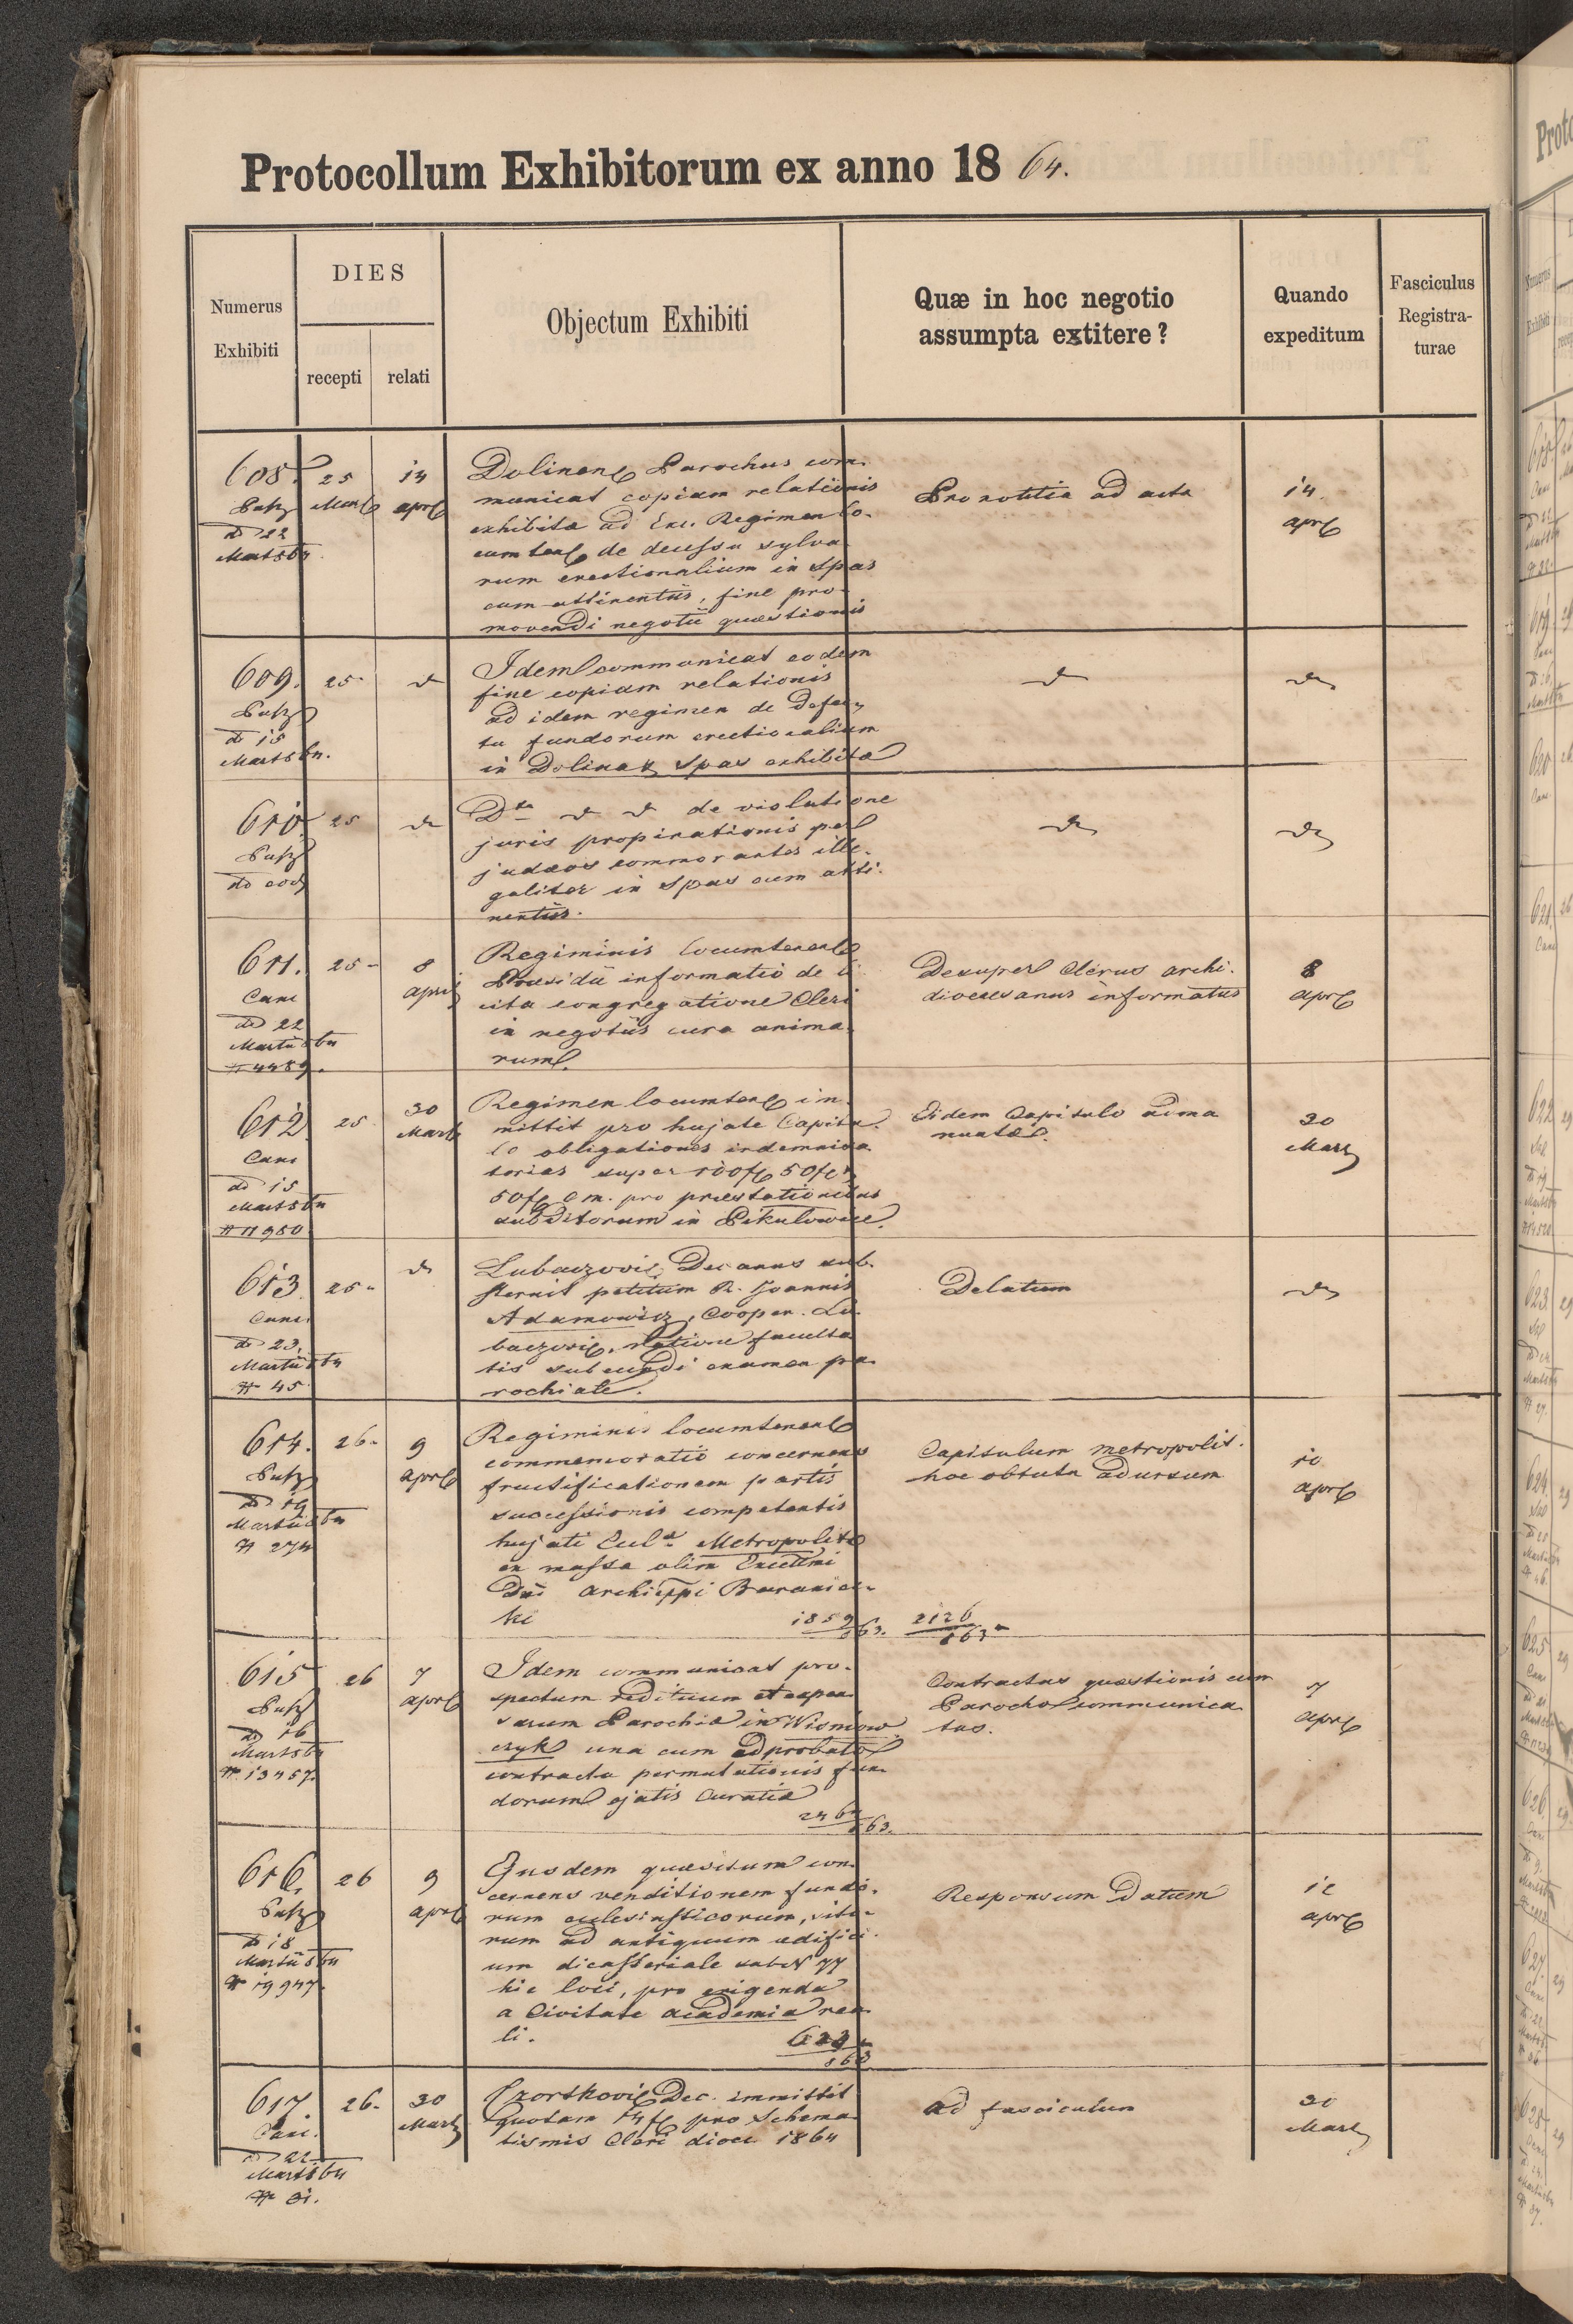 Protocollum Exhibitorum ex anno 18 64.
Numerus
Exhibiti
DIES
recepti
relati
Objectum Exhibiti
Quæ in hoc negotio
assumpta extitere?
Quando
expeditum
Fasciculus
Registra-
turae
608.
25
14
Dolinens Parochus com-
municat copiam relationis
exhibitæ ad Exc. Regimen lo-
cumtens de decessu sylva
rum erectionalium in Spas
cum attinentiis, fine pro-
movendi negotii quæstionis
Pro notitia ad acta
14
apr
609.
25
Idem communicat eodem
fine copiam relationis
ad idem regimen de defec
tu fundorum erectionalium
in Dolina & Spas exhibitæ
610
25
de violatione
juris propinationis per
judæos commorantes ille-
galiter in Spas cum atti-
nentiis.
611.
25
8
april
Regiminis locumtenent
Præsidii informatio de li
cita congregatione Cleri
in negotiis cura anima-
rum.
Desuper Clerus archi-
diocesanus informatus
8
apr
Canc
dd 22
# 4489.
612
25
30
Mart
Regimen locumten im
mittit pro hujate Capitu-
lo obligationes indemnisa
torias super 100f 50f &
50f C m. pro præstationibus
subditorum in Pikulowice.
Eidem Capitulo adma
nuatæ.
30
Mart
Canc
dd 15
# 11980
613
25
Lubaczovie Decanus sub-
sternit petitum R. Joannis
Adamowicz, Cooper. Lu-
baczovie, ratione faculta
tis subeundi examen pa-
rochiale.
Delatum
Canc.
dd 23.
# 45
614.
26
9
apr
Regiminis locumtenent
commemoratio concernens
fructificationem partis
successionis competentis
hujati Eccl. Metropolit
ex massa olim Excellmi
Dni Archieppi Baraniec-
ki
1859/863.
2126/863
Capitulum metropolit.
hoc obtutu adursum
10
apr
# 274
615
26
7
apr
Idem communicat pro-
spectum redituum et expen
sarum Parochiæ in Wisniow
czyk una cum adprobato
contractu permutationis fun-
dorum ejatis Curatiæ
Contractus quæstionis cum
Parocho communica
tus.
7
apr
dd 16
# 13457.
616.
26
9
apr
Ejusdem quæsitum con-
cernens venditionem fundo-
rum ecclesiasticorum, sito-
rum ad antiquum ædifici-
um dicasteriale sub N 77
hic loci, pro erigenda
a Civitate academia rea-
li.
Responsum Datum
apr
dd 18
# 19947.
617
26
30
Mart
Czortkovie Dec. immittit
quotam 14f pro Schema
tismis Cleri dioec 1864
ad fasciculum
30
Mart
Canc.
# 31.